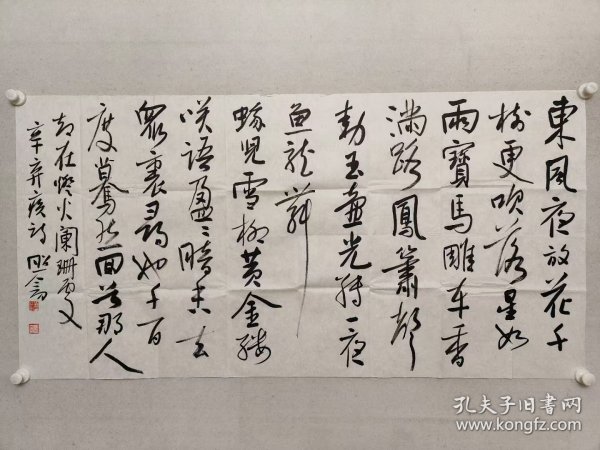 東風夜放花千
樹更吹落星如
雨寶馬雕车香
满路鳳簫聲
動玉壺光轉一夜
魚龍舞
蛾兒雪柳黄金缕
咲語盈〻暗香去
眾裏尋他千百
度驀然回首那人
却在燈火闌珊處又
辛弃疾詞
孔夫子旧書网
www.kongfz.com